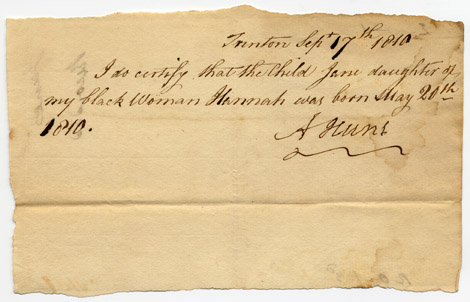 Trenton Sept 17th 1810
I do certify that the Child Jane daughter of
my black Woman Hannah was born May 20th
1810.
A Hunt